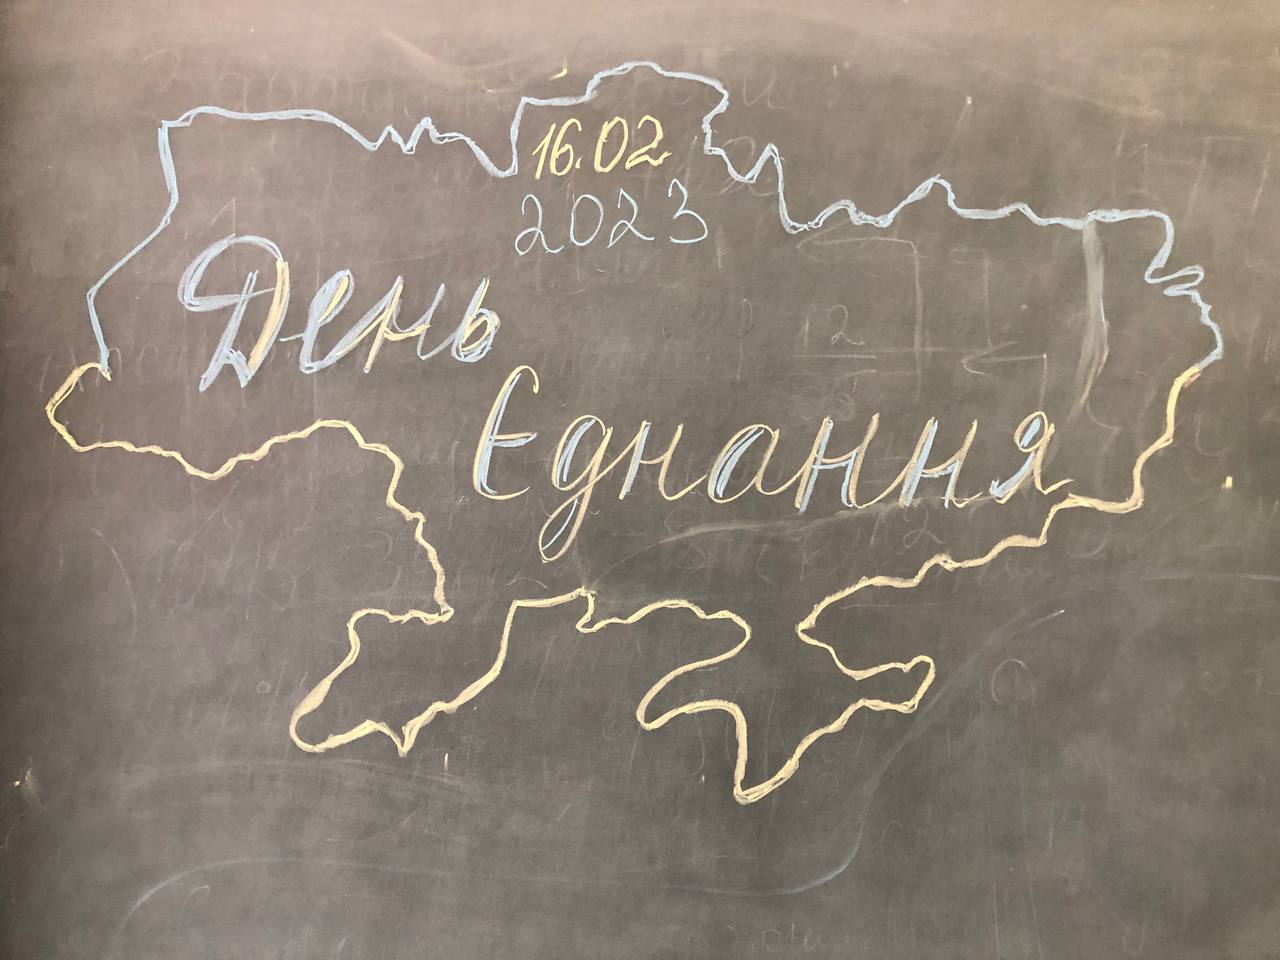 16.02
2023
День
Єднання
12